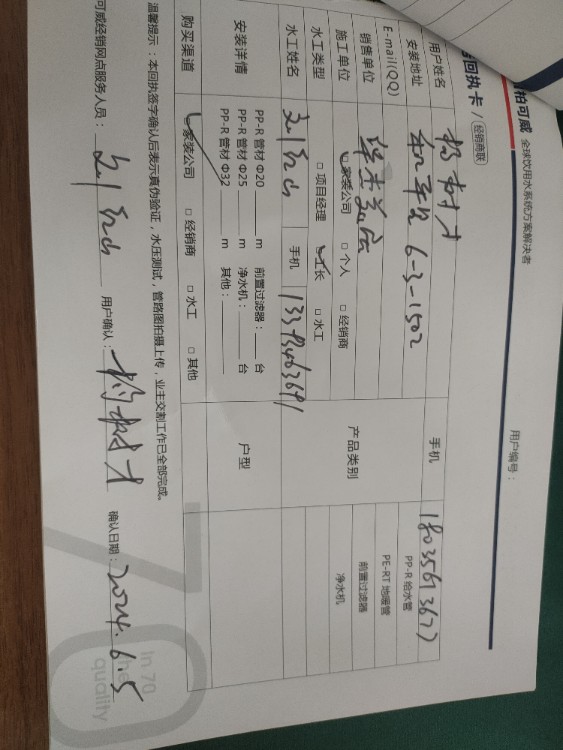 柏可威 全球饮用水系统方案解决者
用户编号：
回执卡 / 经销商联
用户姓名 杨树才 手机 18035613677
安装地址 6-3-1502
E-mail(QQ)
销售单位 产品类别 PP-R 给水管
施工单位 家装公司 □ 个人 □ 经销商 PE-RT 地暖管
水工类型 □ 项目经理 工长 □ 水工 前置过滤器
净水机
水工姓名 手机 13393463691
安装详情 PP-R 管材 Φ20 m 前置过滤器： 台 户型
PP-R 管材 Φ25 m 净水机： 台
PP-R 管材 Φ32 m 其他：
购买渠道 家装公司 □ 经销商 □ 水工 □ 其他
温馨提示：本回执签字确认后表示真伪验证，水压测试，管路图拍摄上传，业主交割工作已全部完成。
可威经销网点服务人员： 用户确认：杨树才 确认日期：2024.6.5
70
In 70
the
quality